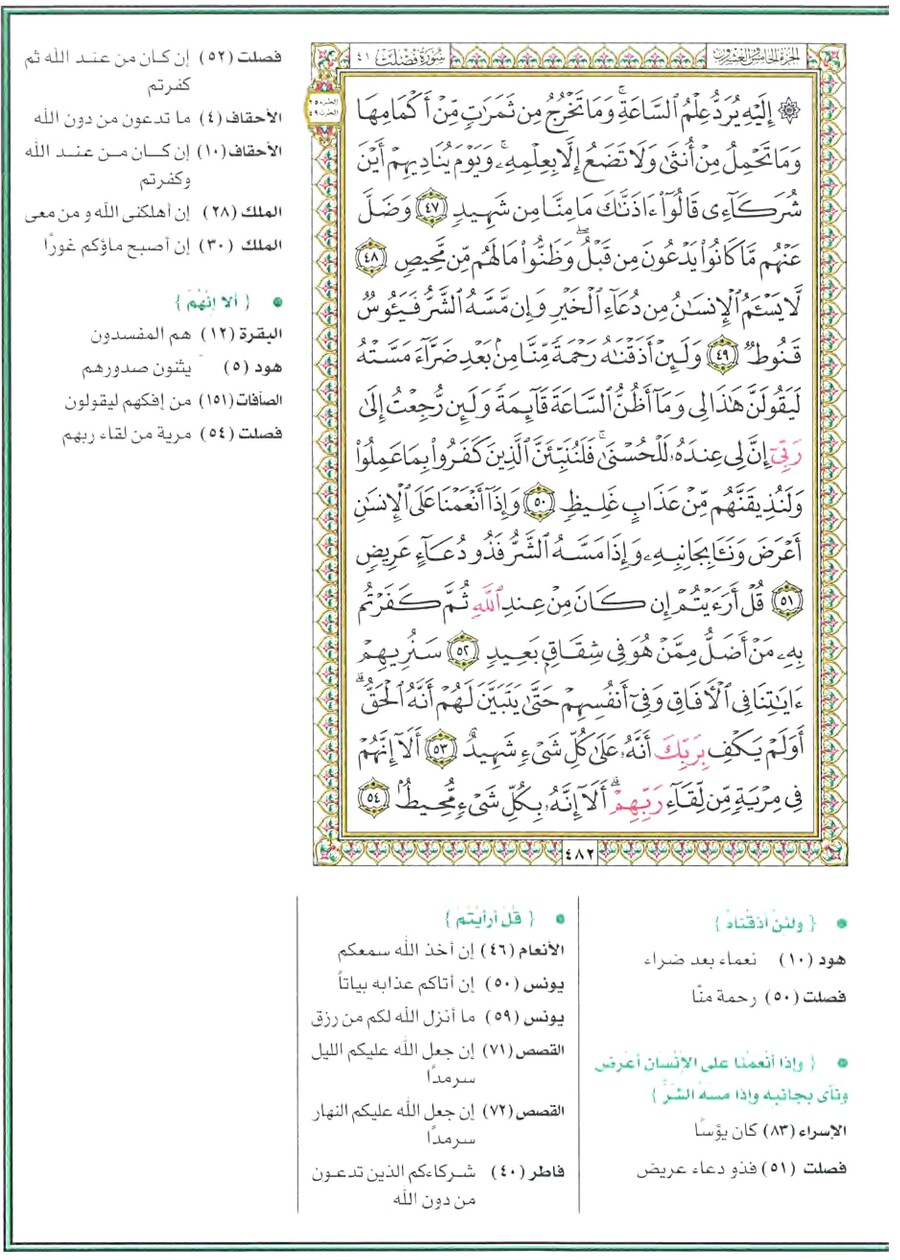 الجزء الخامس والعشرون
سورة فصلت ٤١
۞ إِلَيْهِ يُرَدُّ عِلْمُ ٱلسَّاعَةِۚ وَمَا تَخْرُجُ مِن ثَمَرَٰتٍ مِّنْ أَكْمَامِهَا
وَمَا تَحْمِلُ مِنْ أُنثَىٰ وَلَا تَضَعُ إِلَّا بِعِلْمِهِۦۚ وَيَوْمَ يُنَادِيهِمْ أَيْنَ
شُرَكَآءِى قَالُوٓا۟ ءَاذَنَّٰكَ مَا مِنَّا مِن شَهِيدٍ ٤٧ وَضَلَّ
عَنْهُم مَّا كَانُوا۟ يَدْعُونَ مِن قَبْلُۖ وَظَنُّوا۟ مَا لَهُم مِّن مَّحِيصٍ ٤٨
لَّا يَسْـَٔمُ ٱلْإِنسَٰنُ مِن دُعَآءِ ٱلْخَيْرِ وَإِن مَّسَّهُ ٱلشَّرُّ فَيَـُٔوسٌ
قَنُوطٌ ٤٩ وَلَئِنْ أَذَقْنَٰهُ رَحْمَةً مِّنَّا مِنۢ بَعْدِ ضَرَّآءَ مَسَّتْهُ
لَيَقُولَنَّ هَٰذَا لِى وَمَآ أَظُنُّ ٱلسَّاعَةَ قَآئِمَةً وَلَئِن رُّجِعْتُ إِلَىٰ
رَبِّىٓ إِنَّ لِى عِندَهُۥ لَلْحُسْنَىٰۚ فَلَنُنَبِّئَنَّ ٱلَّذِينَ كَفَرُوا۟ بِمَا عَمِلُوا۟
وَلَنُذِيقَنَّهُم مِّنْ عَذَابٍ غَلِيظٍ ٥٠ وَإِذَآ أَنْعَمْنَا عَلَى ٱلْإِنسَٰنِ
أَعْرَضَ وَنَـَٔا بِجَانِبِهِۦ وَإِذَا مَسَّهُ ٱلشَّرُّ فَذُو دُعَآءٍ عَرِيضٍ
٥١ قُلْ أَرَءَيْتُمْ إِن كَانَ مِنْ عِندِ ٱللَّهِ ثُمَّ كَفَرْتُم
بِهِۦ مَنْ أَضَلُّ مِمَّنْ هُوَ فِى شِقَاقٍۭ بَعِيدٍ ٥٢ سَنُرِيهِمْ
ءَايَٰتِنَا فِى ٱلْـَٔافَاقِ وَفِىٓ أَنفُسِهِمْ حَتَّىٰ يَتَبَيَّنَ لَهُمْ أَنَّهُ ٱلْحَقُّۗ
أَوَلَمْ يَكْفِ بِرَبِّكَ أَنَّهُۥ عَلَىٰ كُلِّ شَىْءٍ شَهِيدٌ ٥٣ أَلَآ إِنَّهُمْ
فِى مِرْيَةٍ مِّن لِّقَآءِ رَبِّهِمْۗ أَلَآ إِنَّهُۥ بِكُلِّ شَىْءٍ مُّحِيطٌۢ ٥٤
٤٨٢
فصلت (٥٢) إن كان من عند الله ثم
كفرتم
الأحقاف (٤) ما تدعون من دون الله
الأحقاف (١٠) إن كان من عند الله
وكفرتم
الملك (٢٨) إن أهلكني الله ومن معي
الملك (٣٠) إن أصبح ماؤكم غورًا
• { ألا إنهم }
البقرة (١٢) هم المفسدون
هود (٥) يثنون صدورهم
الصافات (١٥١) من إفكهم ليقولون
فصلت (٥٤) مرية من لقاء ربهم
• { ولئن أذقناه }
هود (١٠) نعماء بعد ضراء
فصلت (٥٠) رحمة منًّا
• { وإذا أنعمنا على الإنسان أعرض
ونأى بجانبه وإذا مسه الشرُّ }
الإسراء (٨٣) كان يؤسًا
فصلت (٥١) فذو دعاء عريض
• { قل أرأيتم }
الأنعام (٤٦) إن أخذ الله سمعكم
يونس (٥٠) إن أتاكم عذابه بياتاً
يونس (٥٩) ما أنزل الله لكم من رزق
القصص (٧١) إن جعل الله عليكم الليل
سرمدًا
القصص (٧٢) إن جعل الله عليكم النهار
سرمدًا
فاطر (٤٠) شركاءكم الذين تدعون
من دون الله